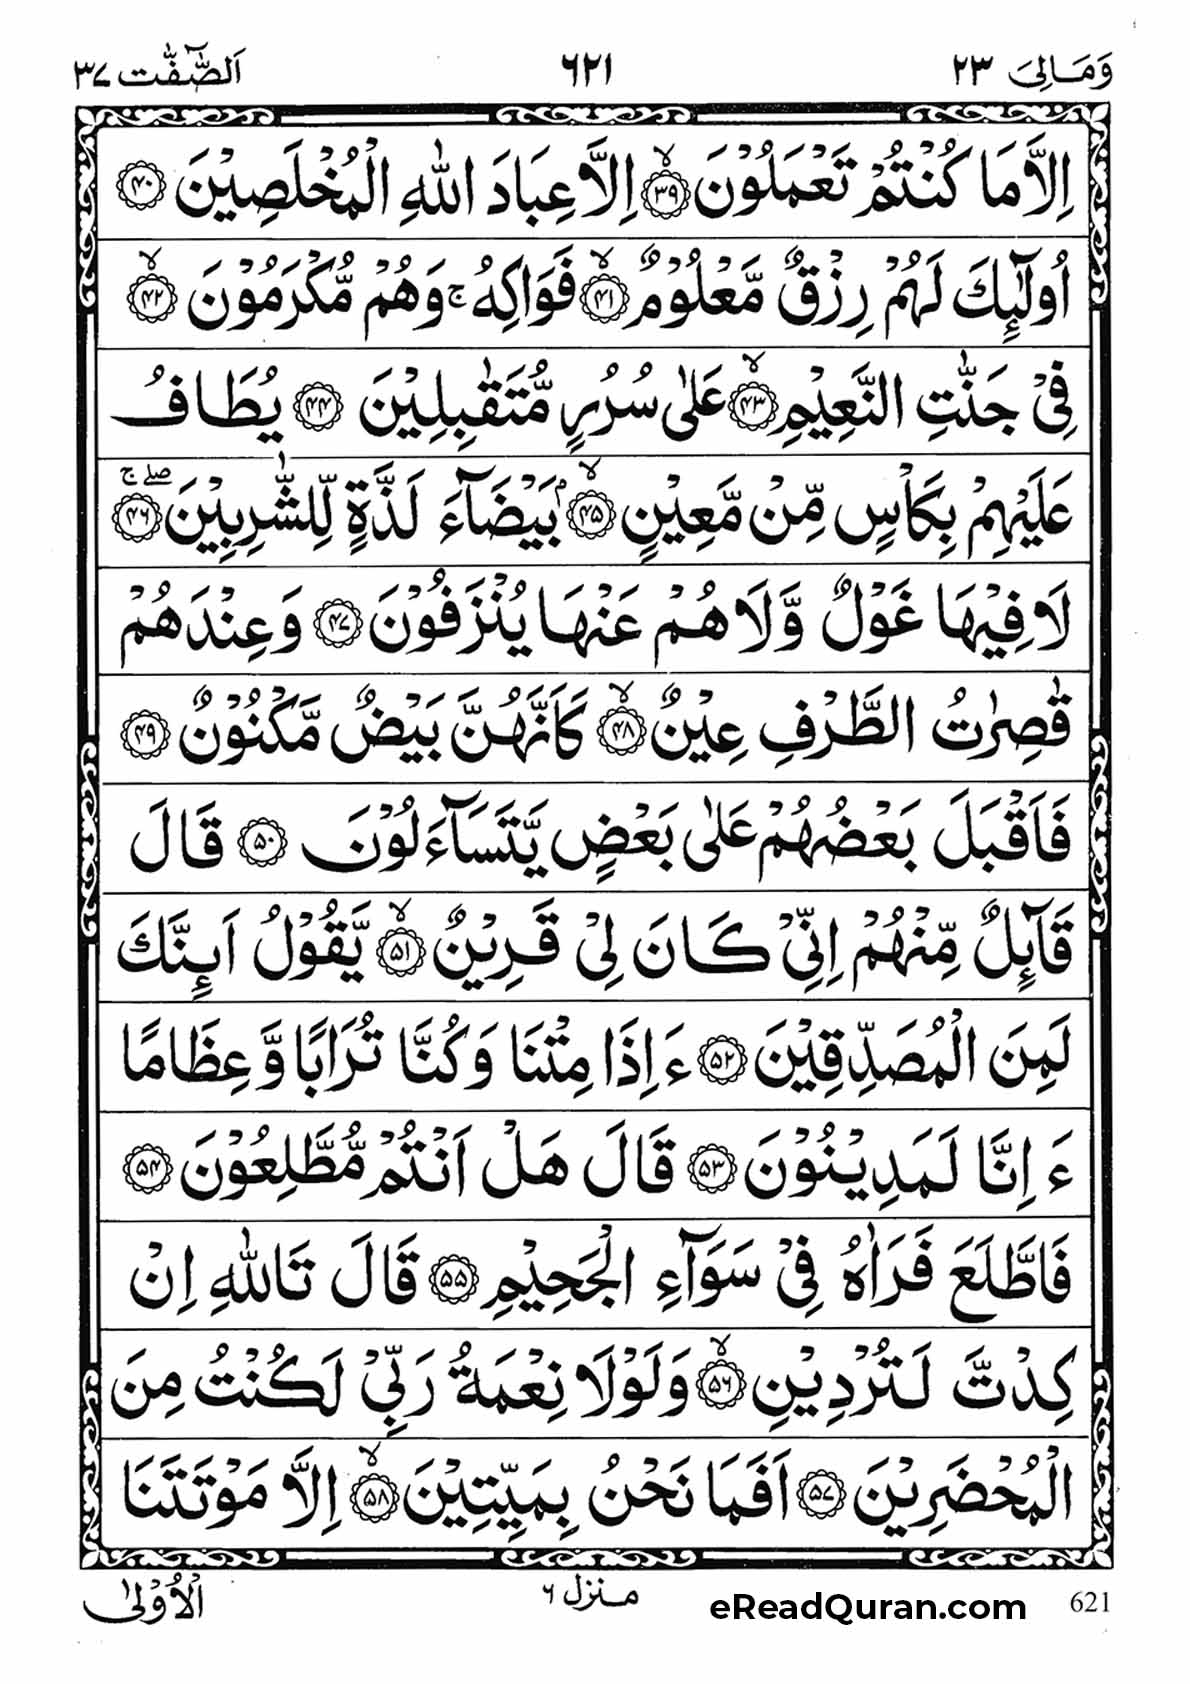 وَمَالِیَ ٢٣
٦٢١
اَلصّٰٓفّٰت ٣٧
اِلَّا مَا كُنْتُمْ تَعْمَلُوْنَ ۙ﴿٣٩﴾ اِلَّا عِبَادَ اللّٰهِ الْمُخْلَصِيْنَ ﴿٤٠﴾
اُولٰٓئِكَ لَهُمْ رِزْقٌ مَّعْلُوْمٌ ۙ﴿٤١﴾ فَوَاكِهُ ۚ وَهُمْ مُّكْرَمُوْنَ ۙ﴿٤٢﴾
فِيْ جَنّٰتِ النَّعِيْمِ ۙ﴿٤٣﴾ عَلٰى سُرُرٍ مُّتَقٰبِلِيْنَ ﴿٤٤﴾ يُطَافُ
عَلَيْهِمْ بِكَاْسٍ مِّنْ مَّعِيْنٍۭ ۙ﴿٤٥﴾ بَيْضَآءَ لَذَّةٍ لِّلشّٰرِبِيْنَ ۖۚ﴿٤٦﴾
لَا فِيْهَا غَوْلٌ وَّلَا هُمْ عَنْهَا يُنْزَفُوْنَ ﴿٤٧﴾ وَعِنْدَهُمْ
قٰصِرٰتُ الطَّرْفِ عِيْنٌ ۙ﴿٤٨﴾ كَاَنَّهُنَّ بَيْضٌ مَّكْنُوْنٌ ﴿٤٩﴾
فَاَقْبَلَ بَعْضُهُمْ عَلٰى بَعْضٍ يَّتَسَآءَلُوْنَ ﴿٥٠﴾ قَالَ
قَآئِلٌ مِّنْهُمْ اِنِّيْ كَانَ لِيْ قَرِيْنٌ ۙ﴿٥١﴾ يَّقُوْلُ اَىِٕنَّكَ
لَمِنَ الْمُصَدِّقِيْنَ ﴿٥٢﴾ ءَاِذَا مِتْنَا وَكُنَّا تُرَابًا وَّعِظَامًا
ءَاِنَّا لَمَدِيْنُوْنَ ﴿٥٣﴾ قَالَ هَلْ اَنْتُمْ مُّطَّلِعُوْنَ ﴿٥٤﴾
فَاطَّلَعَ فَرَاٰهُ فِيْ سَوَآءِ الْجَحِيْمِ ﴿٥٥﴾ قَالَ تَاللّٰهِ اِنْ
كِدْتَّ لَتُرْدِيْنِ ۙ﴿٥٦﴾ وَلَوْلَا نِعْمَةُ رَبِّيْ لَكُنْتُ مِنَ
الْمُحْضَرِيْنَ ﴿٥٧﴾ اَفَمَا نَحْنُ بِمَيِّتِيْنَ ۙ﴿٥٨﴾ اِلَّا مَوْتَتَنَا
الْاُوْلٰى
منزل ٦
eReadQuran.com
621